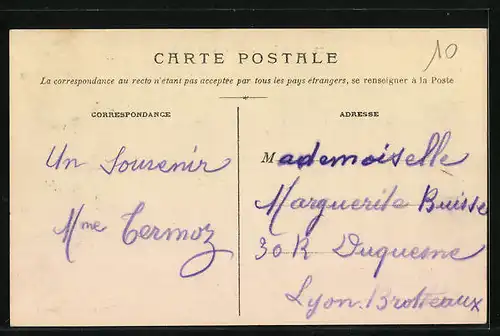 10
CARTE POSTALE
La correspondance au recto n'étant pas acceptée par tous les pays étrangers, se renseigner à la Poste
CORRESPONDANCE
Un Souvenir
Mme Termoz
ADRESSE
Mademoiselle
Marguerite Buisse
30 R Duquesne
Lyon-Brotteaux